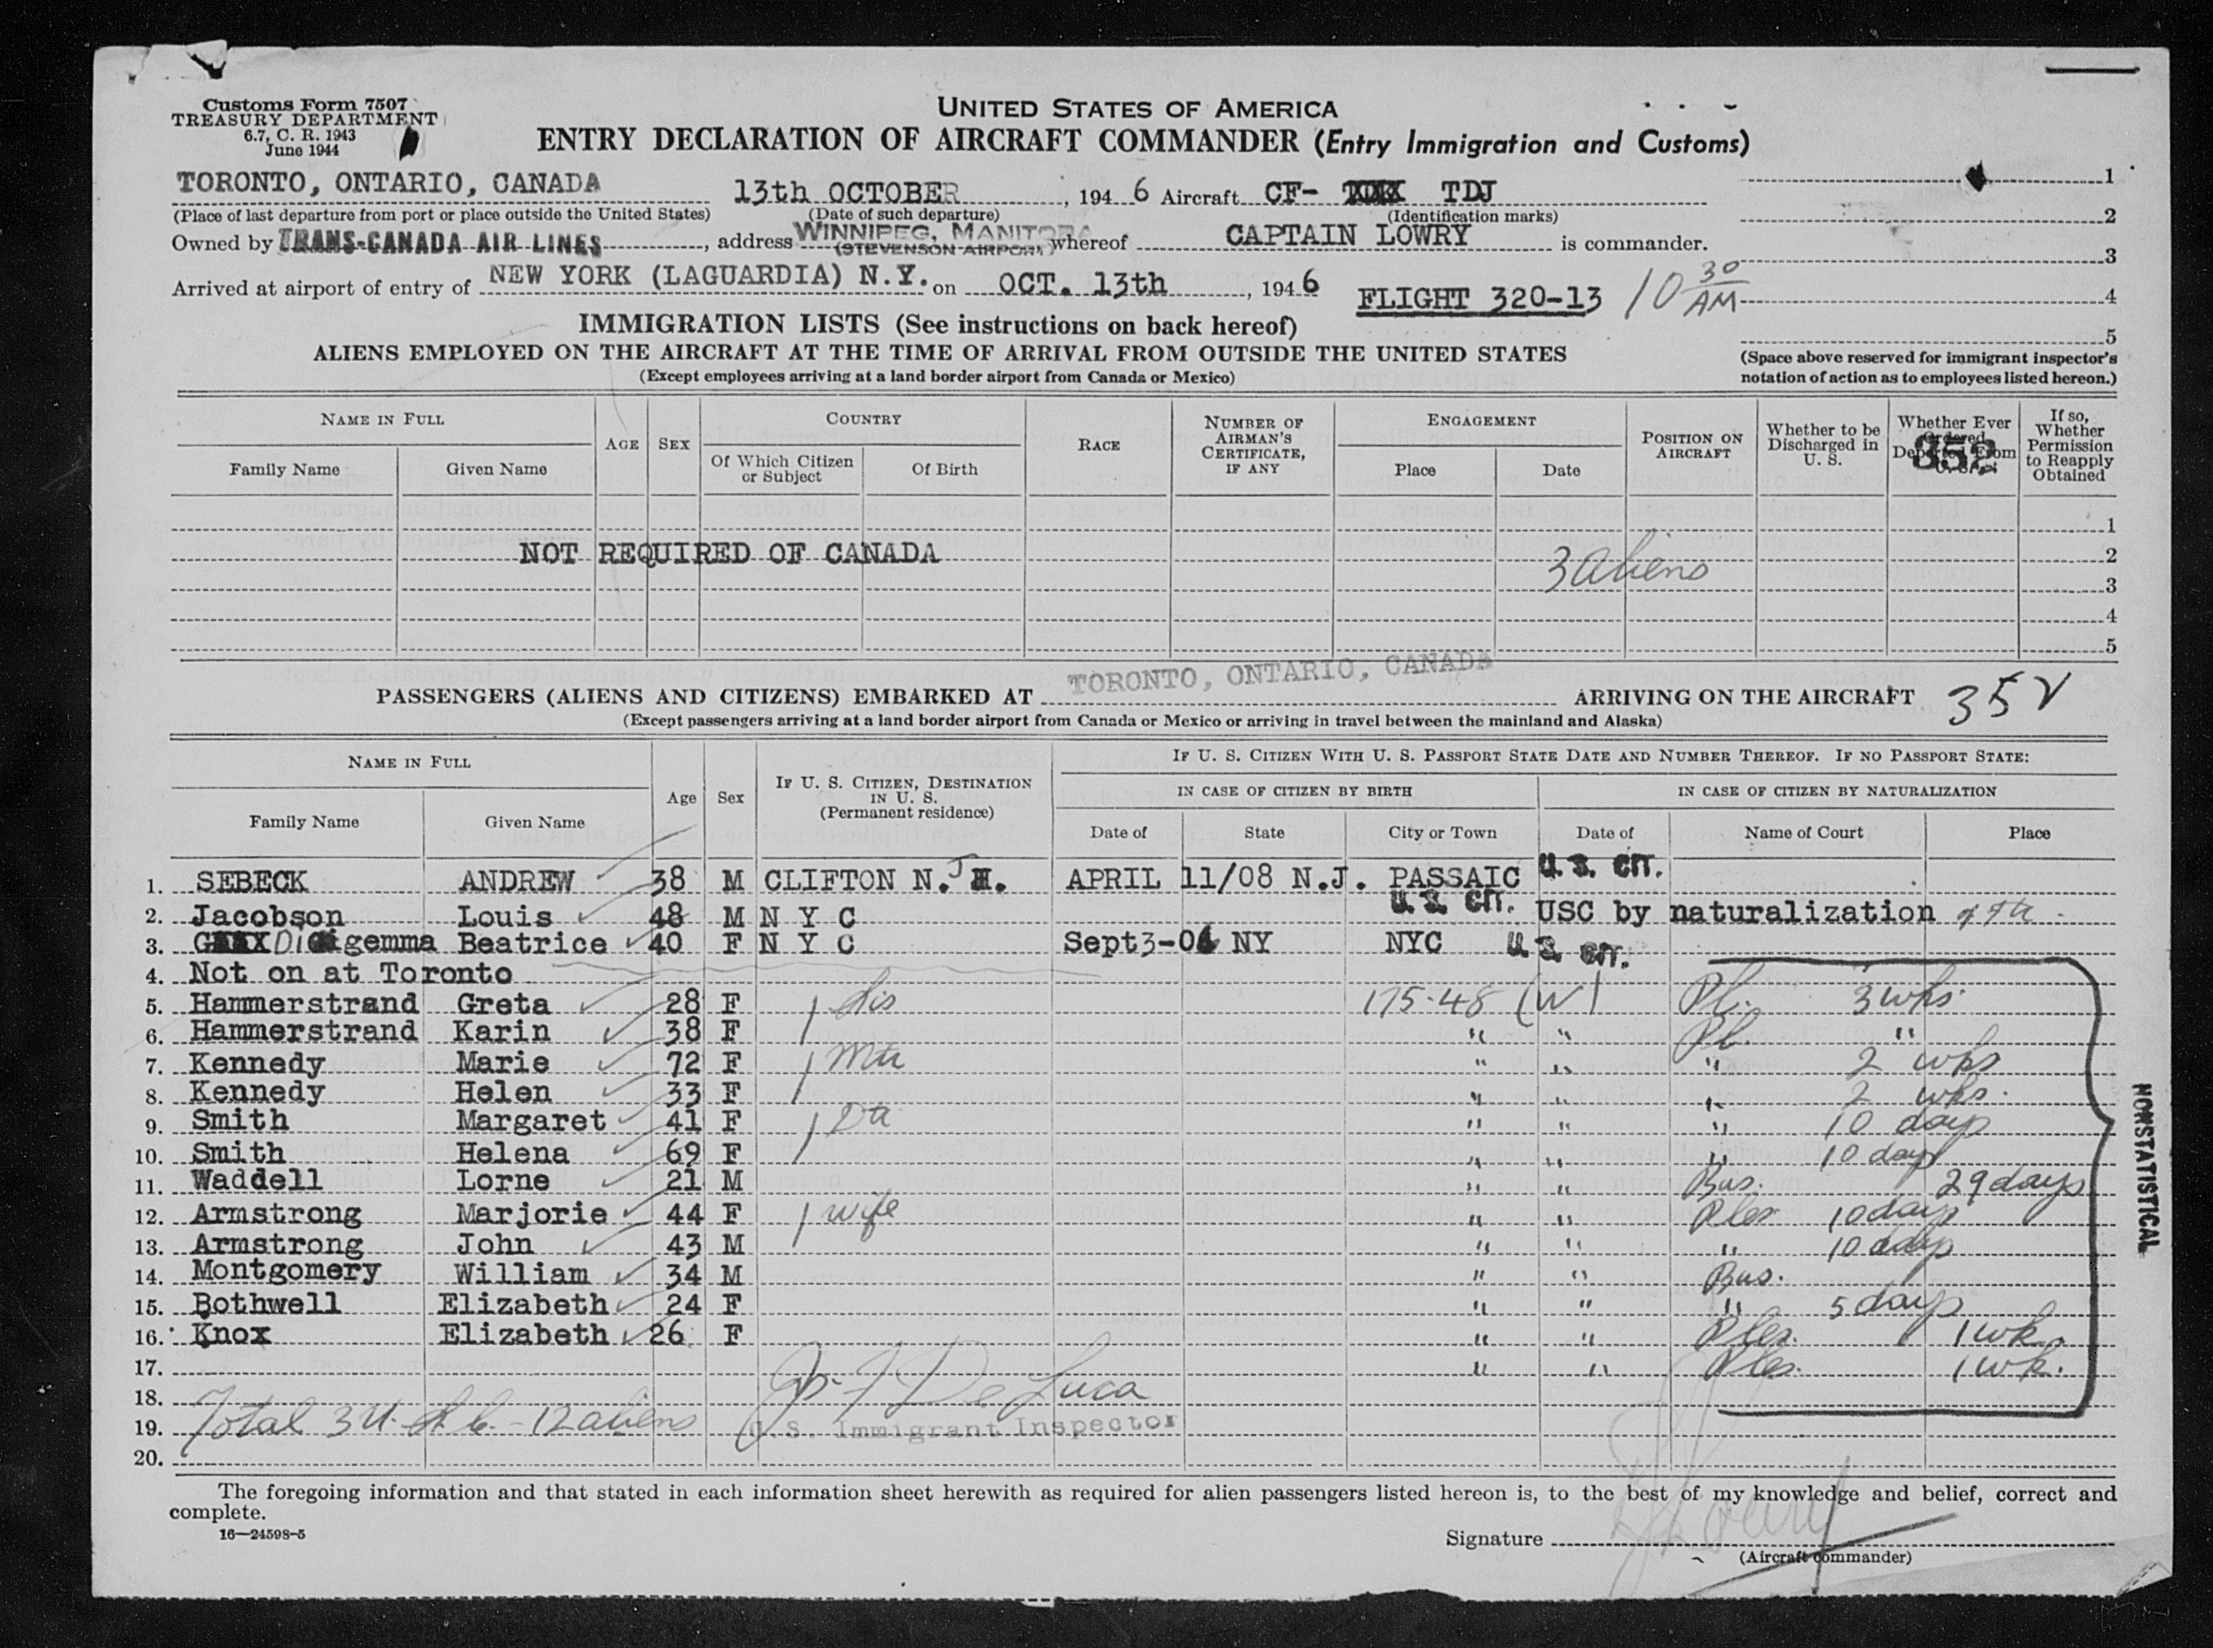 Customs Form 7507
TREASURY DEPARTMENT
6.7, C. R. 1943
June 1944
UNITED STATES OF AMERICA
ENTRY DECLARATION OF AIRCRAFT COMMANDER (Entry Immigration and Customs)
TORONTO, ONTARIO, CANADA 13th OCTOBER, 194 6 Aircraft CF- TDJ 1
(Place of last departure from port or place outside the United States) (Date of such departure) (Identification marks) 2
Owned by TRANS-CANADA AIR LINES, address WINNIPEG, MANITOBA (STEVENSON AIRPORT) whereof CAPTAIN LOWRY is commander.
3
Arrived at airport of entry of NEW YORK (LAGUARDIA) N.Y. on OCT. 13th, 194 6 FLIGHT 320-13 10 30 AM 4
IMMIGRATION LISTS (See instructions on back hereof)
5
ALIENS EMPLOYED ON THE AIRCRAFT AT THE TIME OF ARRIVAL FROM OUTSIDE THE UNITED STATES
(Except employees arriving at a land border airport from Canada or Mexico)
(Space above reserved for immigrant inspector's
notation of action as to employees listed hereon.)
NAME IN FULL
Family Name Given Name
AGE SEX
COUNTRY
Of Which Citizen or Subject Of Birth
RACE
NUMBER OF AIRMAN'S CERTIFICATE, IF ANY
ENGAGEMENT
Place Date
POSITION ON AIRCRAFT
Whether to be Discharged in U. S.
Whether Ever Ordered Deported From
If so, Whether Permission to Reapply Obtained
1
NOT REQUIRED OF CANADA 2
3 aliens 3
4
5
PASSENGERS (ALIENS AND CITIZENS) EMBARKED AT TORONTO, ONTARIO, CANADA ARRIVING ON THE AIRCRAFT 35
(Except passengers arriving at a land border airport from Canada or Mexico or arriving in travel between the mainland and Alaska)
NAME IN FULL
Family Name Given Name
Age Sex
IF U. S. CITIZEN, DESTINATION IN U. S.
(Permanent residence)
IF U. S. CITIZEN WITH U. S. PASSPORT STATE DATE AND NUMBER THEREOF. IF NO PASSPORT STATE:
IN CASE OF CITIZEN BY BIRTH IN CASE OF CITIZEN BY NATURALIZATION
Date of State City or Town Date of Name of Court Place
1. SEBECK ANDREW 38 M CLIFTON N.J. APRIL 11/08 N.J. PASSAIC U. S. CIT.
2. Jacobson Louis 48 M N Y C U. S. CIT. USC by naturalization
3. gemma Beatrice 40 F N Y C Sept 3-06 NY NYC U. S. CIT.
4. Not on at Toronto
5. Hammerstrand Greta 28 F sis 175.48 (W) Pl. 3 wks.
6. Hammerstrand Karin 38 F " " Pl. "
7. Kennedy Marie 72 F " " " 2 wks
8. Kennedy Helen 33 F " " " 2 wks.
9. Smith Margaret 41 F " " " 10 days
10. Smith Helena 69 F " " " 10 days
11. Waddell Lorne 21 M " " Bus. 29 days
12. Armstrong Marjorie 44 F wife " " Ples 10 days
13. Armstrong John 43 M " " " 10 days
14. Montgomery William 34 M " " Bus.
15. Bothwell Elizabeth 24 F " " " 5 days
16. Knox Elizabeth 26 F " " Ples. 1 wk.
17. " " Ples. 1 wk.
18. De Luca
19. Total 3 U.S.C. - 12 aliens U.S. Immigrant Inspector
20.
NONSTATISTICAL
The foregoing information and that stated in each information sheet herewith as required for alien passengers listed hereon is, to the best of my knowledge and belief, correct and
complete.
16—24598-5
Signature
(Aircraft commander)